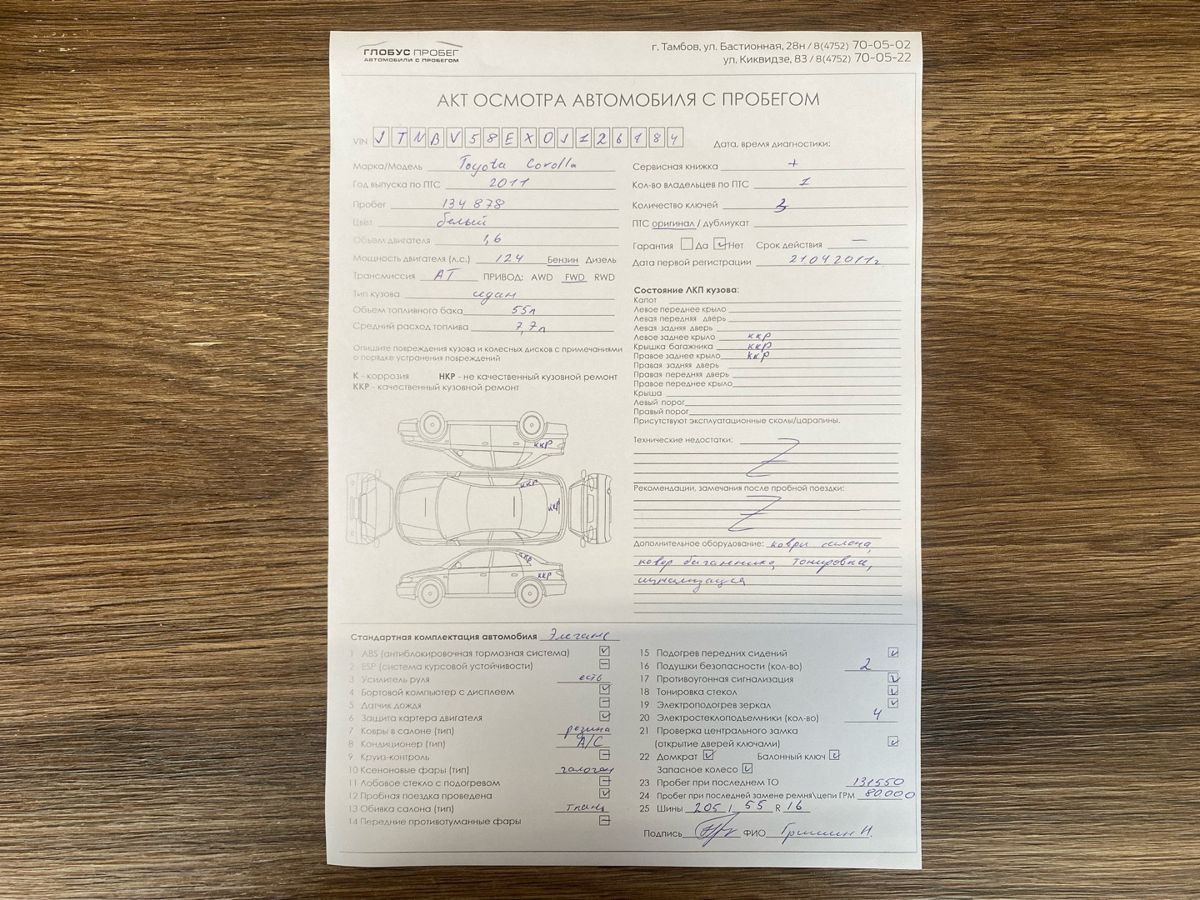 ГЛОБУС ПРОБЕГ
АВТОМОБИЛИ С ПРОБЕГОМ
г. Тамбов, ул. Бастионная, 28н / 8(4752) 70-05-02
ул. Киквидзе, 83 / 8(4752) 70-05-22
АКТ ОСМОТРА АВТОМОБИЛЯ С ПРОБЕГОМ
VIN JTNBV58EX0J126184
Дата, время диагностики:
Марка/Модель Toyota Corolla
Год выпуска по ПТС 2011
Пробег 134 878
Цвет белый
Объем двигателя 1,6
Мощность двигателя (л.с.) 124 Бензин Дизель
Трансмиссия АТ ПРИВОД: AWD FWD RWD
Тип кузова седан
Объем топливного бака 55л
Средний расход топлива 7,7л
Сервисная книжка +
Кол-во владельцев по ПТС 1
Количество ключей 3
ПТС оригинал / дубликат
Гарантия Да Нет Срок действия —
Дата первой регистрации 21042011г.
Опишите повреждения кузова и колесных дисков с примечаниями
о порядке устранения повреждений
К - коррозия НКР - не качественный кузовной ремонт
ККР - качественный кузовной ремонт
ККР
ККР
ККР
ККР
ККР
Состояние ЛКП кузова:
Капот
Левое переднее крыло
Левая передняя дверь
Левая задняя дверь
Левое заднее крыло ККР
Крышка багажника ККР
Правое заднее крыло ККР
Правая задняя дверь
Правая передняя дверь
Правое переднее крыло
Крыша
Левый порог
Правый порог
Присутствуют эксплуатационные сколы/царапины.
Технические недостатки:
Рекомендации, замечания после пробной поездки:
Дополнительное оборудование: ковры салона,
ковер багажника, тонировка,
сигнализация
Стандартная комплектация автомобиля Элеганс
1 ABS (антиблокировочная тормозная система)
2 ESP (система курсовой устойчивости)
3 Усилитель руля есть
4 Бортовой компьютер с дисплеем
5 Датчик дождя
6 Защита картера двигателя
7 Ковры в салоне (тип) резина
8 Кондиционер (тип) A/C
9 Круиз-контроль
10 Ксеноновые фары (тип) галоген
11 Лобовое стекло с подогревом
12 Пробная поездка проведена
13 Обивка салона (тип) ткань
14 Передние противотуманные фары
15 Подогрев передних сидений
16 Подушки безопасности (кол-во) 2
17 Противоугонная сигнализация
18 Тонировка стекол
19 Электроподогрев зеркал
20 Электростеклоподъемники (кол-во) 4
21 Проверка центрального замка
(открытие дверей ключами)
22 Домкрат Балонный ключ
Запасное колесо
23 Пробег при последнем ТО 131550
24 Пробег при последней замене ремня\цепи ГРМ 80000
25 Шины 205 / 55 R 16
Подпись ФИО Гришин Н